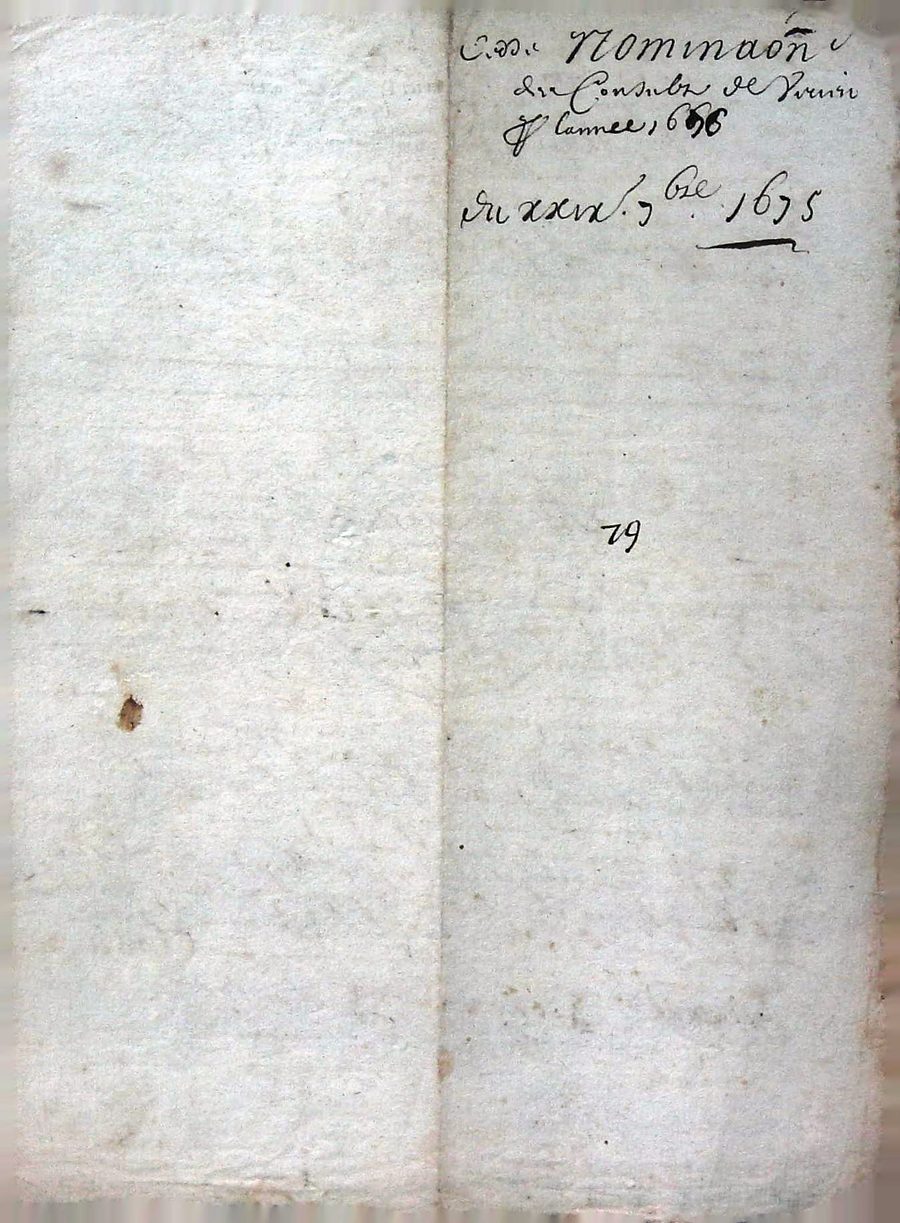 Nominaôn
des Consulz de
P lannee 1676
du xxix.e 7bre 1675
79